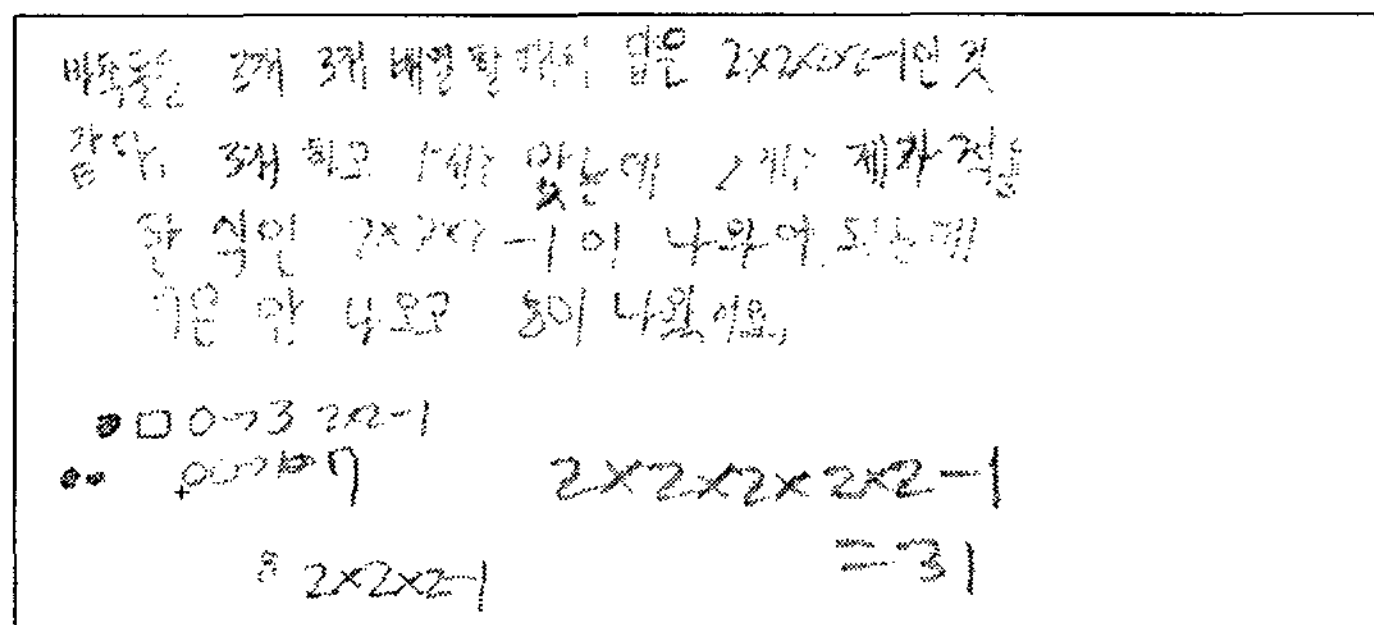 바둑돌을 3개 3개 배열할 때의 답은 2×2×2×2-1인 것
같다. 3개 하고 1개는 맞는데 2개는 제가 적은
한 식인 2×2×2-1이 나와야 되는데
7은 안 나오고 8이 나왔어요.
●□○→3 2×2-1
●● ○○→7
2×2×2×2×2-1
2×2×2-1
=31